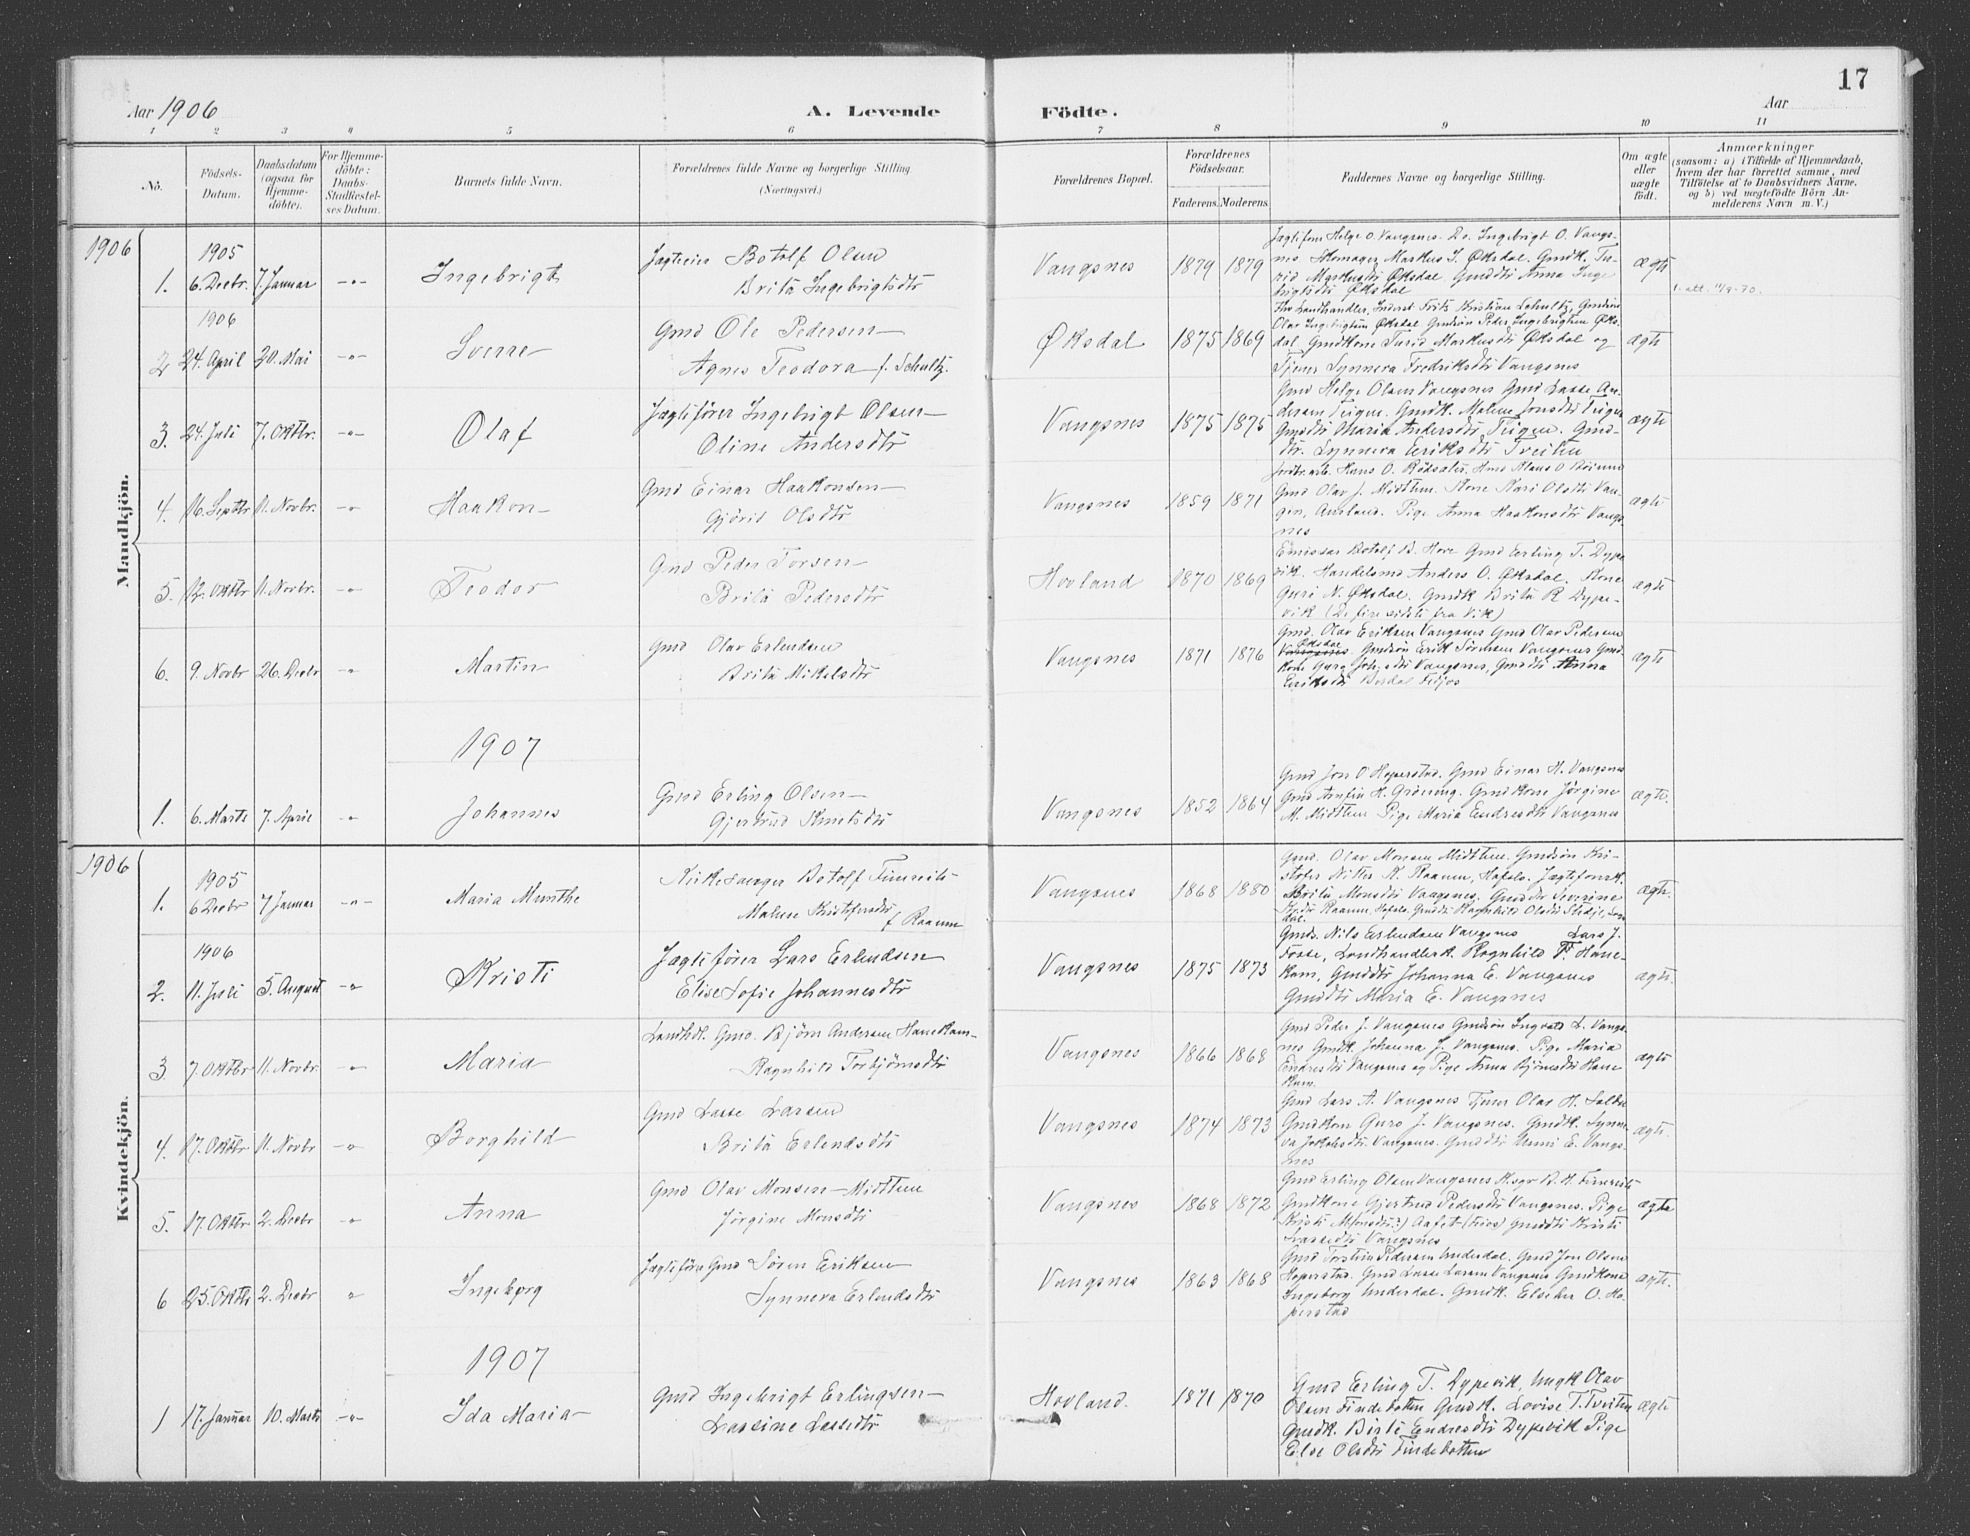 17
Aar 1906
A. Levende Födte.
Aar
1 2 3 4 5 6 7 8 9 10 11
No.
Födsels-Datum.
Daabsdatum (ogsaa for Hjemme-döbte).
For Hjemme-döbte: Daabs-Stadfæstel-ses Datum.
Barnets fulde Navn.
Forældrenes fulde Navne og borgerlige Stilling. (Næringsvei.)
Forældrenes Bopæl.
Forældrenes Födselsaar.
Faderens. Moderens.
Faddernes Navne og borgerlige Stilling.
Om ægte eller uægte født.
Anmærkninger
(saasom: a) i Tilfælde af Hjemmedaab,
hvem der har forrettet samme, med
Tilföielse af to Daabsvidners Navne,
og b) ved uægtefödte Börn An-
melderens Navn m. V.)
Mandkjön.
1906
1905
1. 6. Decbr. 7. Januar -"- Ingebrigt
Jagteier Botolf Olsen
Brita Ingebrigtsdtr
Vangsnes 1879 1879
Helge O. Vangsnes. Do. Ingebrigt O. Vangs-
nes Skomager Markus J. Øksdal. Gmdk. Tu-
rid Markusdtr Øksdal, Gmddtr Anna Inge
brigtsdtr Øksdal
ægte
1906
2 24. April 20. Mai -"- Sverre
Gmd Ole Pedersen
Agnes Teodora f. Schultz.
Øksdal 1875 1869
Landhandler, Frits Kristian Schultz, Gmdsön
Olav Ingebrigtsen Øksdal Gmdsön Peder Ingebrigtsen Øks-
dal Gmdkone Turid Markusdtr Øksdal og
Tjener Synneva Fredriksdtr Vangsnes
ægte
3. 24. Juli 7. Oktbr. -"- Olaf
Jagtefører Ingebrigt Olsen
Oline Andersdtr
Vangsnes 1875 1875
Gmd Helge Olsen Vangsnes Gmd Lasse An-
dersen Teigen. Gmdk. Malene Jonsdtr Teigen
Gmddtr Maria Andersdtr Teigen. Gmd-
dtr. Synneva Eeriksdtr Tveiten
ægte
4. 16. Septbr 11. Novbr. -"- Haakon
Gmd Einar Haakonsen
Gjörid Olsdtr
Vangsnes 1859 1871
Hans O. Rödsæter,
Gmd Olav J. Midttun. Kone Kari Olsdtr Van-
gen, Aurland. Pige Anna Haakonsdtr Vangs-
nes
ægte
5. 12. Oktbr 11. Novbr. -"- Teodor
Gmd Peder Torsen
Brita Pedersdtr
Hovland 1870 1869
Emissær Botolf B. Hove Gmd Erling T. Dype
vik. Handelsmd Anders O. Øksdal. Kone
Guri N. Øksdal. Gmdk Brita R Dype-
vik (De fire sidste fra Vik)
ægte
6. 9. Novbr 26. Decbr -"- Martin
Gmd Olav Erlendsen
Brita Mikelsdtr
Vangsnes 1871 1876
Gmd. Olav Eriksen Vangsnes Gmd Olav Pedersen
Øksdal
Vangsnes. Gmdsön Erik Vangsnes Gmd
kone Guro Vangsnes, Gmddtr Anna
Eriksdtr Fedjos
ægte
1907
1. 6. Marts 7. April -"- Johannes
Gmd Erling Olsen
Gjertrud Knutsdtr
Vangsnes 1852 1864
Gmd Jon O Hoperstad. Gmd Einar H. Vangsnes
Gmd Arnfin H. Grönseng. Gmdkone Jörgine
M. Midttun Pige Maria Endresdtr Vangsnes
ægte.
Kvindekjön.
1906
1905
1. 6 Decbr 7 Januar -"- Maria Munthe
Kirkesanger Botolf Finreite
Malene Kristofersdtr
f Raaum
Vangsnes 1868 1880
Gmd. Olav Monsen Midttun. Gmdsön Kri-
stofer Nitter K. Raaum, Hafslo.
Brita Monsdtr Vangsnes. Gmddtr Severine
Raaum, Hafslo. Gmddtr Ragnhild Olsdtr Stedje, Son
dal.
ægte.
1906
2. 11. Juli 5. August -"- Kristi
Jagtefører Lars Erlendsen
Elise Sofie Johannesdtr
Vangsnes 1875 1873
Gmds. Nils Erlendsen Vangsnes Lars J.
Fosse, Landhandlerk. Ragnhild T. Hane-
kam, Gmddtr Johanna E. Vangsnes
Gmddtr Maria E. Vangsnes
ægte.
3. 7. Oktbr 11. Novbr. -"- Maria
Landhdl. Gmd. Björn Andersen Hanekam
Ragnhild Torbjörnsdtr
Vangsnes 1866 1868
Gmd Peder J. Vangsnes Gmdsön Ingvald L. Vangs-
nes Gmdk. Johanna J. Vangsnes. Pige Maria
Endresdtr Vangsnes og Pige Anna Björnsdtr Hane
kam.
ægte
4. 17. Oktbr 11. Novbr -"- Borghild
Gmd Lasse Larsen
Brita Erlendsdtr
Vangsnes 1874 1873
Gmd Lars A. Vangsnes Tjener Olav H. Sælde
Gmdkone Guro J. Vangsnes. Gmdk. Synne-
va Vangsnes. Gmddtr Unni E. Vangs-
nes
ægte.
5. 17. Oktbr 2. Decbr -"- Anna
Gmd Olav Monsen Midttun
Jørgine Monsdtr
Vangsnes 1868 1872
Gmd Erling Olsen Vangsnes K.sgr B. H. Finreite
Gmdkone Gjertrud Pedersdtr Vangsnes. Pige
Kristi M(onsdtr?) Aafet (Fios) Gmddtr Kristi
Lassedtr Vangsnes
ægte
6 25. Oktbr 2. Decbr " Ingebjørg
Jagtefører Gmd Sören Eriksen
Synneva Erlendsdtr
Vangsnes 1863 1868
Gmd Torstein Pedersen Underdal. Gmd Jon Olsen
Hoperstad. Gmd Lasse Larsen Vangsnes Gmdkone
Ingeborg Underdal. Gmdk. Elseber O. Ho-
perstad
ægte.
1907
1 17. Januar 10. Marts -"- Ida Maria
Gmd Ingebrigt Erlingsen
Lassine Lassedtr
Hovland. 1871 1870
Gmd Erling T. Dypevik, Ungk Olav
Olsen Findebotten Gmdk. Lovise T. Tveiten
Gmdk. Birte Endresdtr Dypevik Pige
Else Olsdtr Findebotten
ægte